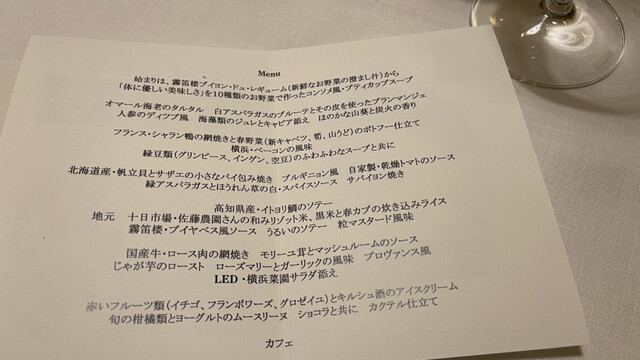 Menu
始まりは、霧笛楼ブイヨン・ドュ・レギューム(新鮮なお野菜の澄まし汁)から
「体に優しい美味しさ」を10種類のお野菜で作ったコンソメ風・プティカップスープ
オマール海老のタルタル 白アスパラガスのブルーテとその皮を使ったブランマンジェ
人参のディップ風 海藻類のジュレとキャビア添え ほのかな山葵と炭火の香り
フランス・シャラン鴨の網焼きと春野菜(新キャベツ、筍、山うど)のポトフー仕立て
横浜・ベーコンの風味
緑豆類(グリンピース、インゲン、空豆)のふわふわなスープと共に
北海道産・帆立貝とサザエの小さなパイ包み焼き ブルギニョン風 自家製・乾燥トマトのソース
緑アスパラガスとほうれん草の白・スパイスソース サバイヨン焼き
高知県産・イトヨリ鯛のソテー
地元 十日市場・佐藤農園さんの和みリゾット米、黒米と春カブの炊き込みライス
霧笛楼・ブイヤベス風ソース うるいのソテー 粒マスタード風味
国産牛・ロース肉の網焼き モリーユ茸とマッシュルームのソース
じゃが芋のロースト ローズマリーとガーリックの風味 プロヴァンス風
LED・横浜菜園サラダ添え
赤いフルーツ類(イチゴ、フランボワーズ、グロゼイユ)とキルシュ酒のアイスクリーム
旬の柑橘類とヨーグルトのムースリーヌ ショコラと共に カクテル仕立て
カフェ